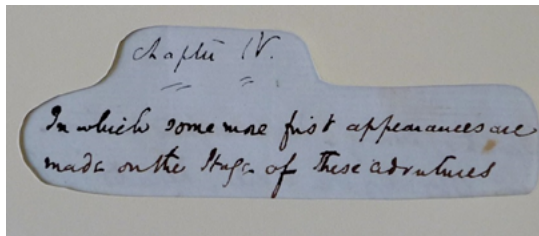 Chapter IV.
In which some more first appearances are
made on the Stage of these adventures